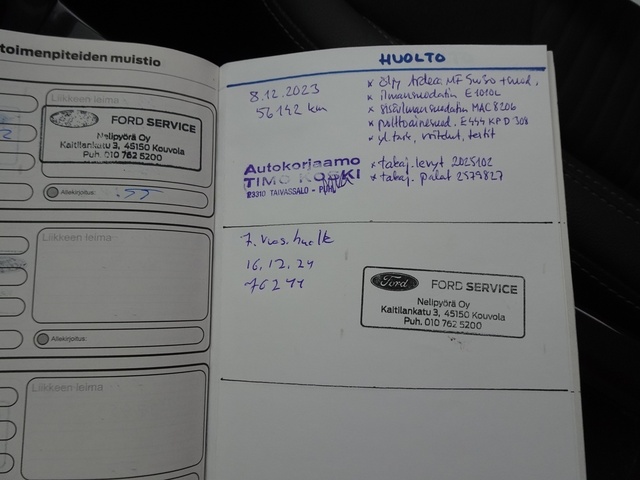 toimenpiteiden muistio
Liikkeen leima
Ford
FORD SERVICE
Nelipyörä Oy
Kaitilankatu 3, 45150 Kouvola
Puh. 010 762 5200
Allekirjoitus:
Liikkeen leima
Allekirjoitus:
Liikkeen leima
HUOLTO
8.12.2023
56142 km
x öljy Ardeca MF 5W30 + suod.
x ilmansuodatin E1010L
x sisäilmansuodatin MAC8206
x polttoainesuod. E444KP D308
x yl. tark, voitelut, testit
Autokorjaamo
TIMO KOSKI
23310 TAIVASSALO
x takaj. levyt 2025102
x takaj. palat 2579827
7. vuos. huolto
16.12.24
76244
Ford
FORD SERVICE
Nelipyörä Oy
Kaitilankatu 3, 45150 Kouvola
Puh. 010 762 5200